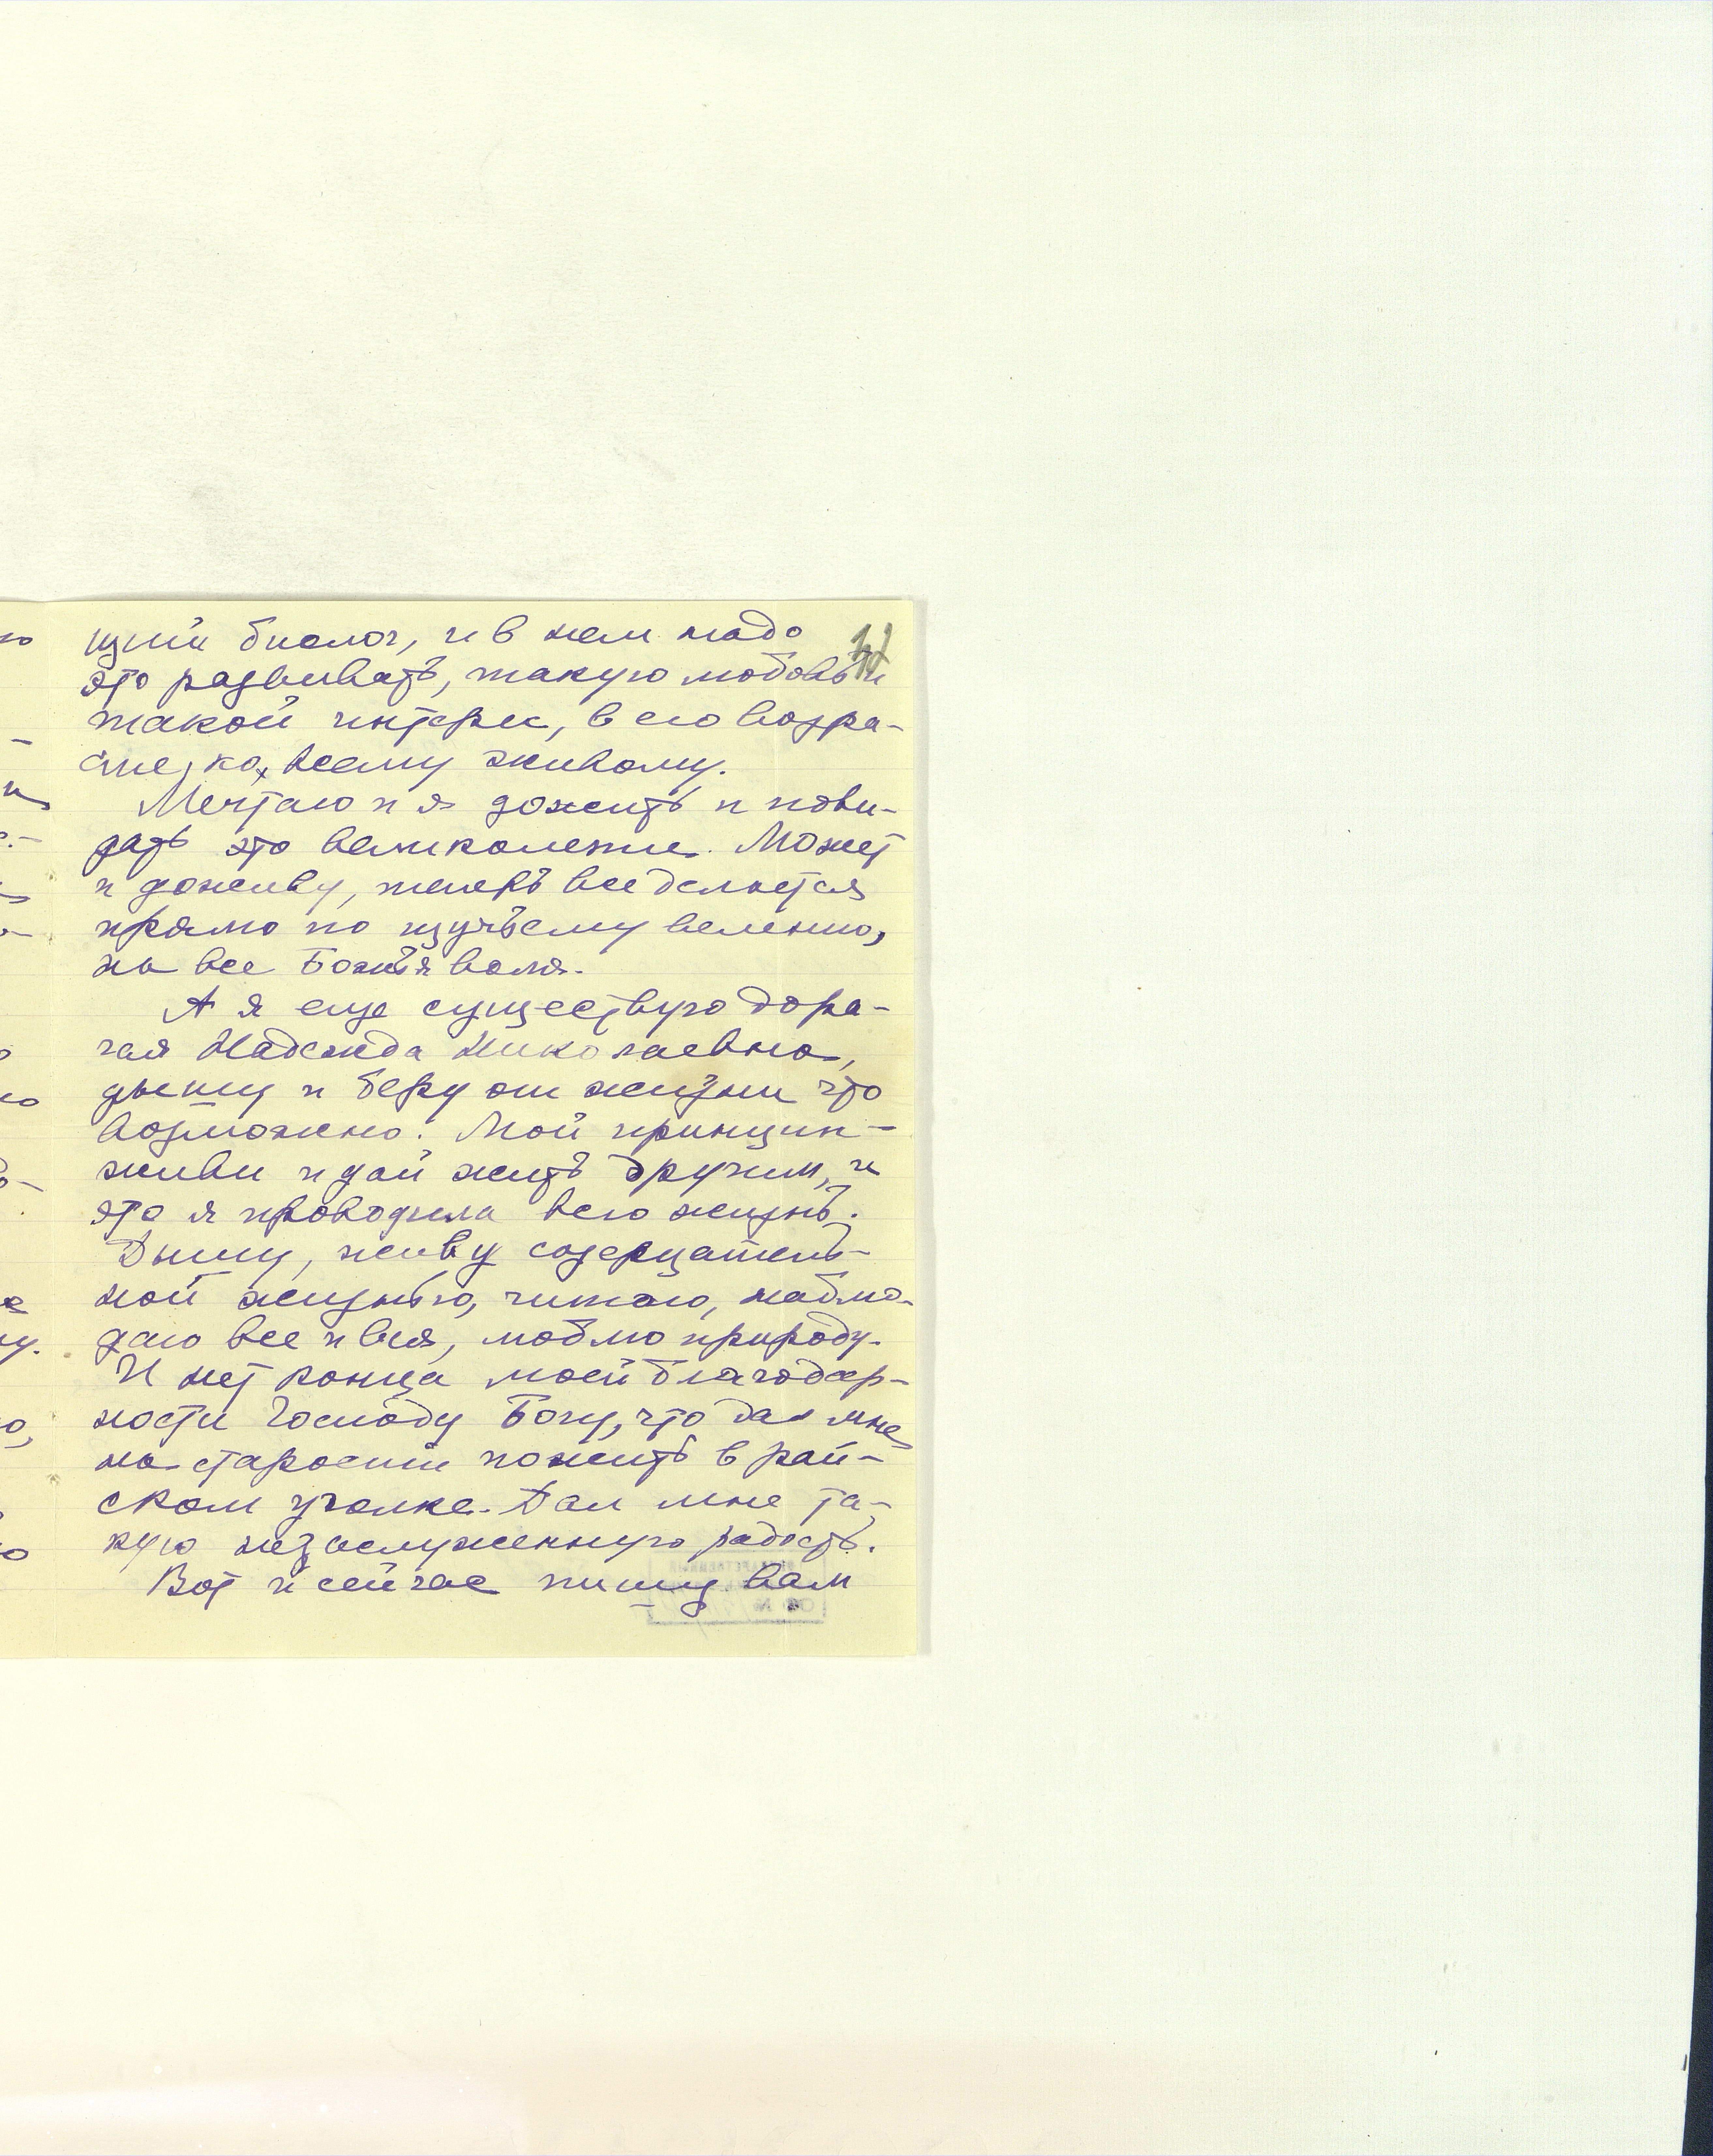 щий биолог, и в нем надо
это развивать, такую любовь и
такой интерес, в его возра-
сте, ко всему живому.
Мечтаю и я дожить и пови-
дать это великолепие. Может
и доживу, теперь все делается
прямо по щучьему велению,
на все Божья воля.
А я еще существую доро-
гая Надежда Николаевна,
дышу и беру от жизни что
возможно. Мой принцип -
живи и дай жить другим, и
это я проводила всю жизнь.
Дышу, живу созерцатель-
ной жизнью, читаю, наблю-
даю все и вся, люблю природу.
И нет конца моей благодар-
ности Господу Богу, что дал мне
на старости пожить в рай-
ском уголке. Дал мне та-
кую незаслуженную радость.
Вот и сейчас пишу вам